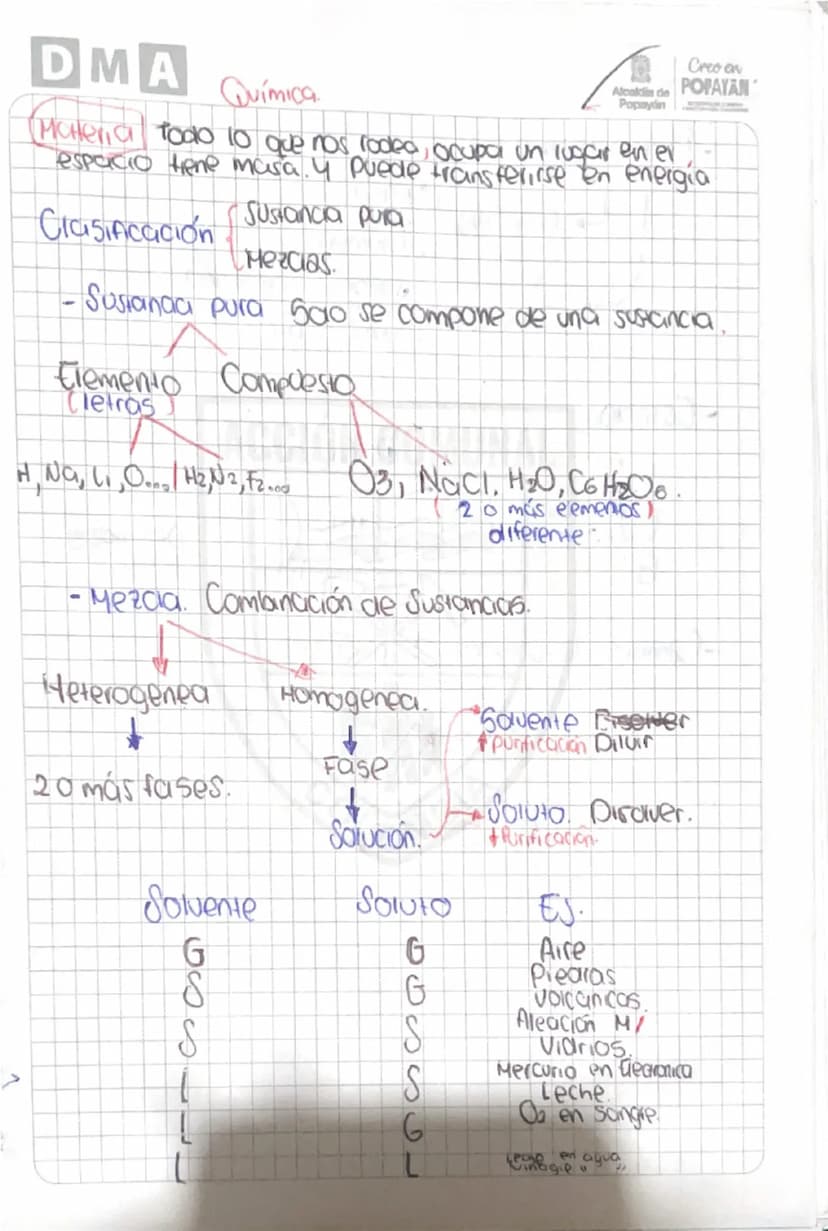 DMA
Química.
Alcaldía de Popayán
Creo en POPAYÁN
Materia todo lo que nos rodea, ocupa un lugar en el
espacio tiene masa. y puede transferirse en energía
Clasificación
Sustancia pura
Mezclas.
- Sustancia pura Solo se compone de una sustancia.
Elemento Compuesto
(letras)
H, Na, Li, O.... / H2, N2, F2....
O3, NaCl. H2O, C6H2O6.
( 2 o más elementos)
diferente
- Mezcla. Combinación de Sustancias.
Heterogenea Homogenea.
Solvente
↑ purificación Diluir
Fase
2 o más fases.
Soluto. Disolver.
Solución.
Purificación.
Solvente Soluto EJ.
G G Aire
S G Piedras
volcánicas.
S S Aleación M/
Vidrios.
L S Mercurio en Electronica
Leche.
L G O2 en Sangre.
L L en agua